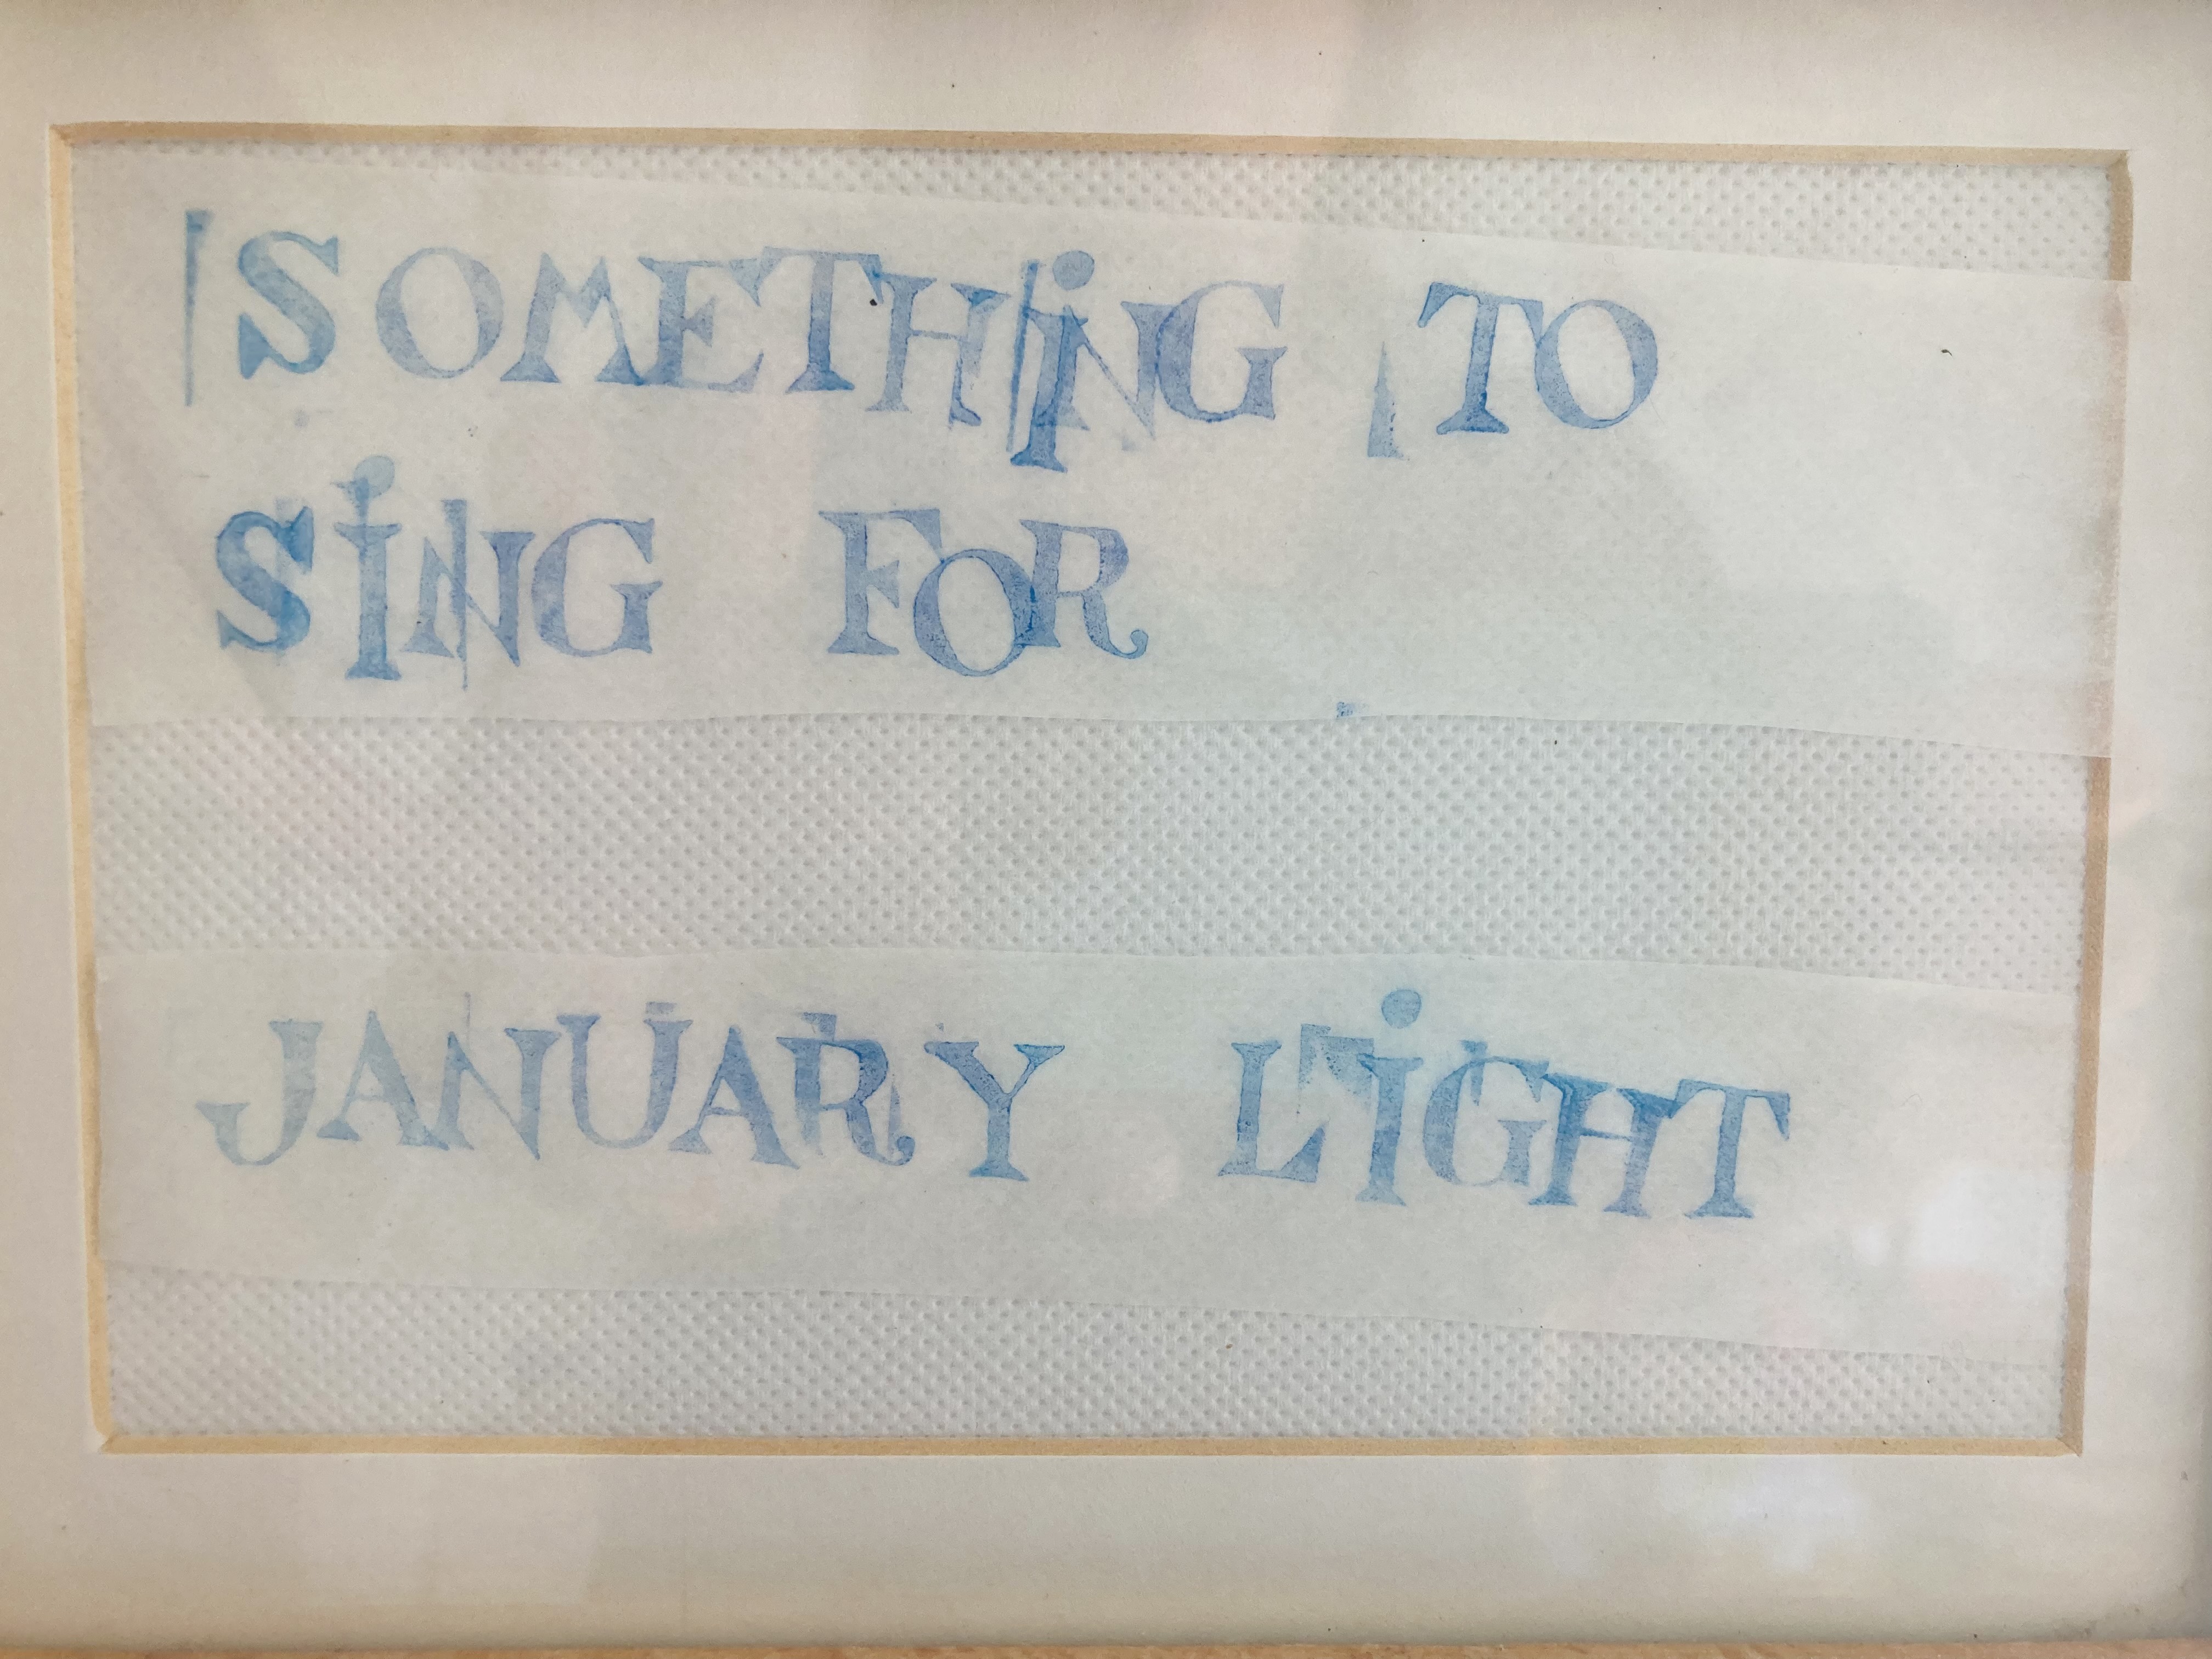 SOMETHiNG TO
SiNG FOR
JANUARY LiGHT